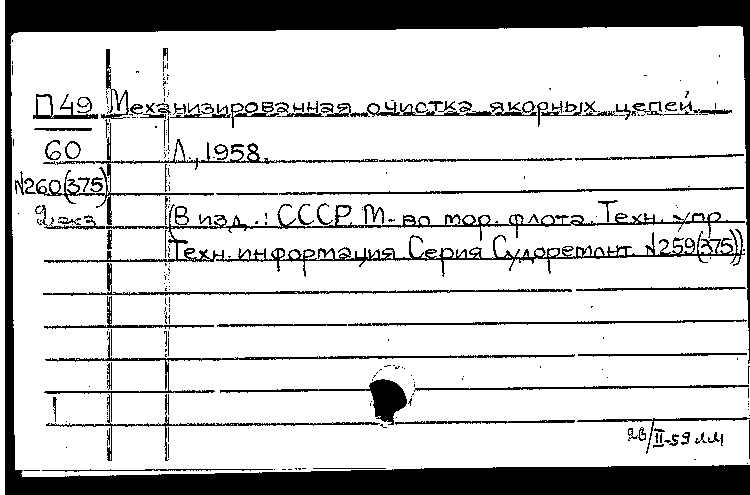 П49 Механизированная очистка якорных цепей.
60 Л., 1958.
№260(375)
2 экз (В изд.: СССР. М-во мор. флота. Техн. упр.
Техн. информация Серия Судоремонт. №259(375))
28/II-59 ЛМ